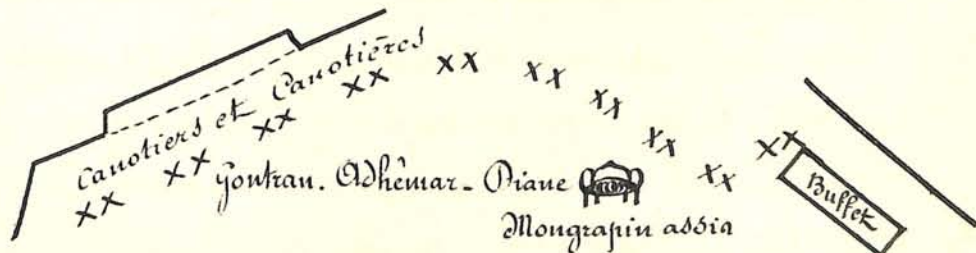 Canotiers et Canotières
XX XX XX XX XX XX XX XX XX XX
Gontran. Adhémar - Diane
Mongrapin assis
Buffet